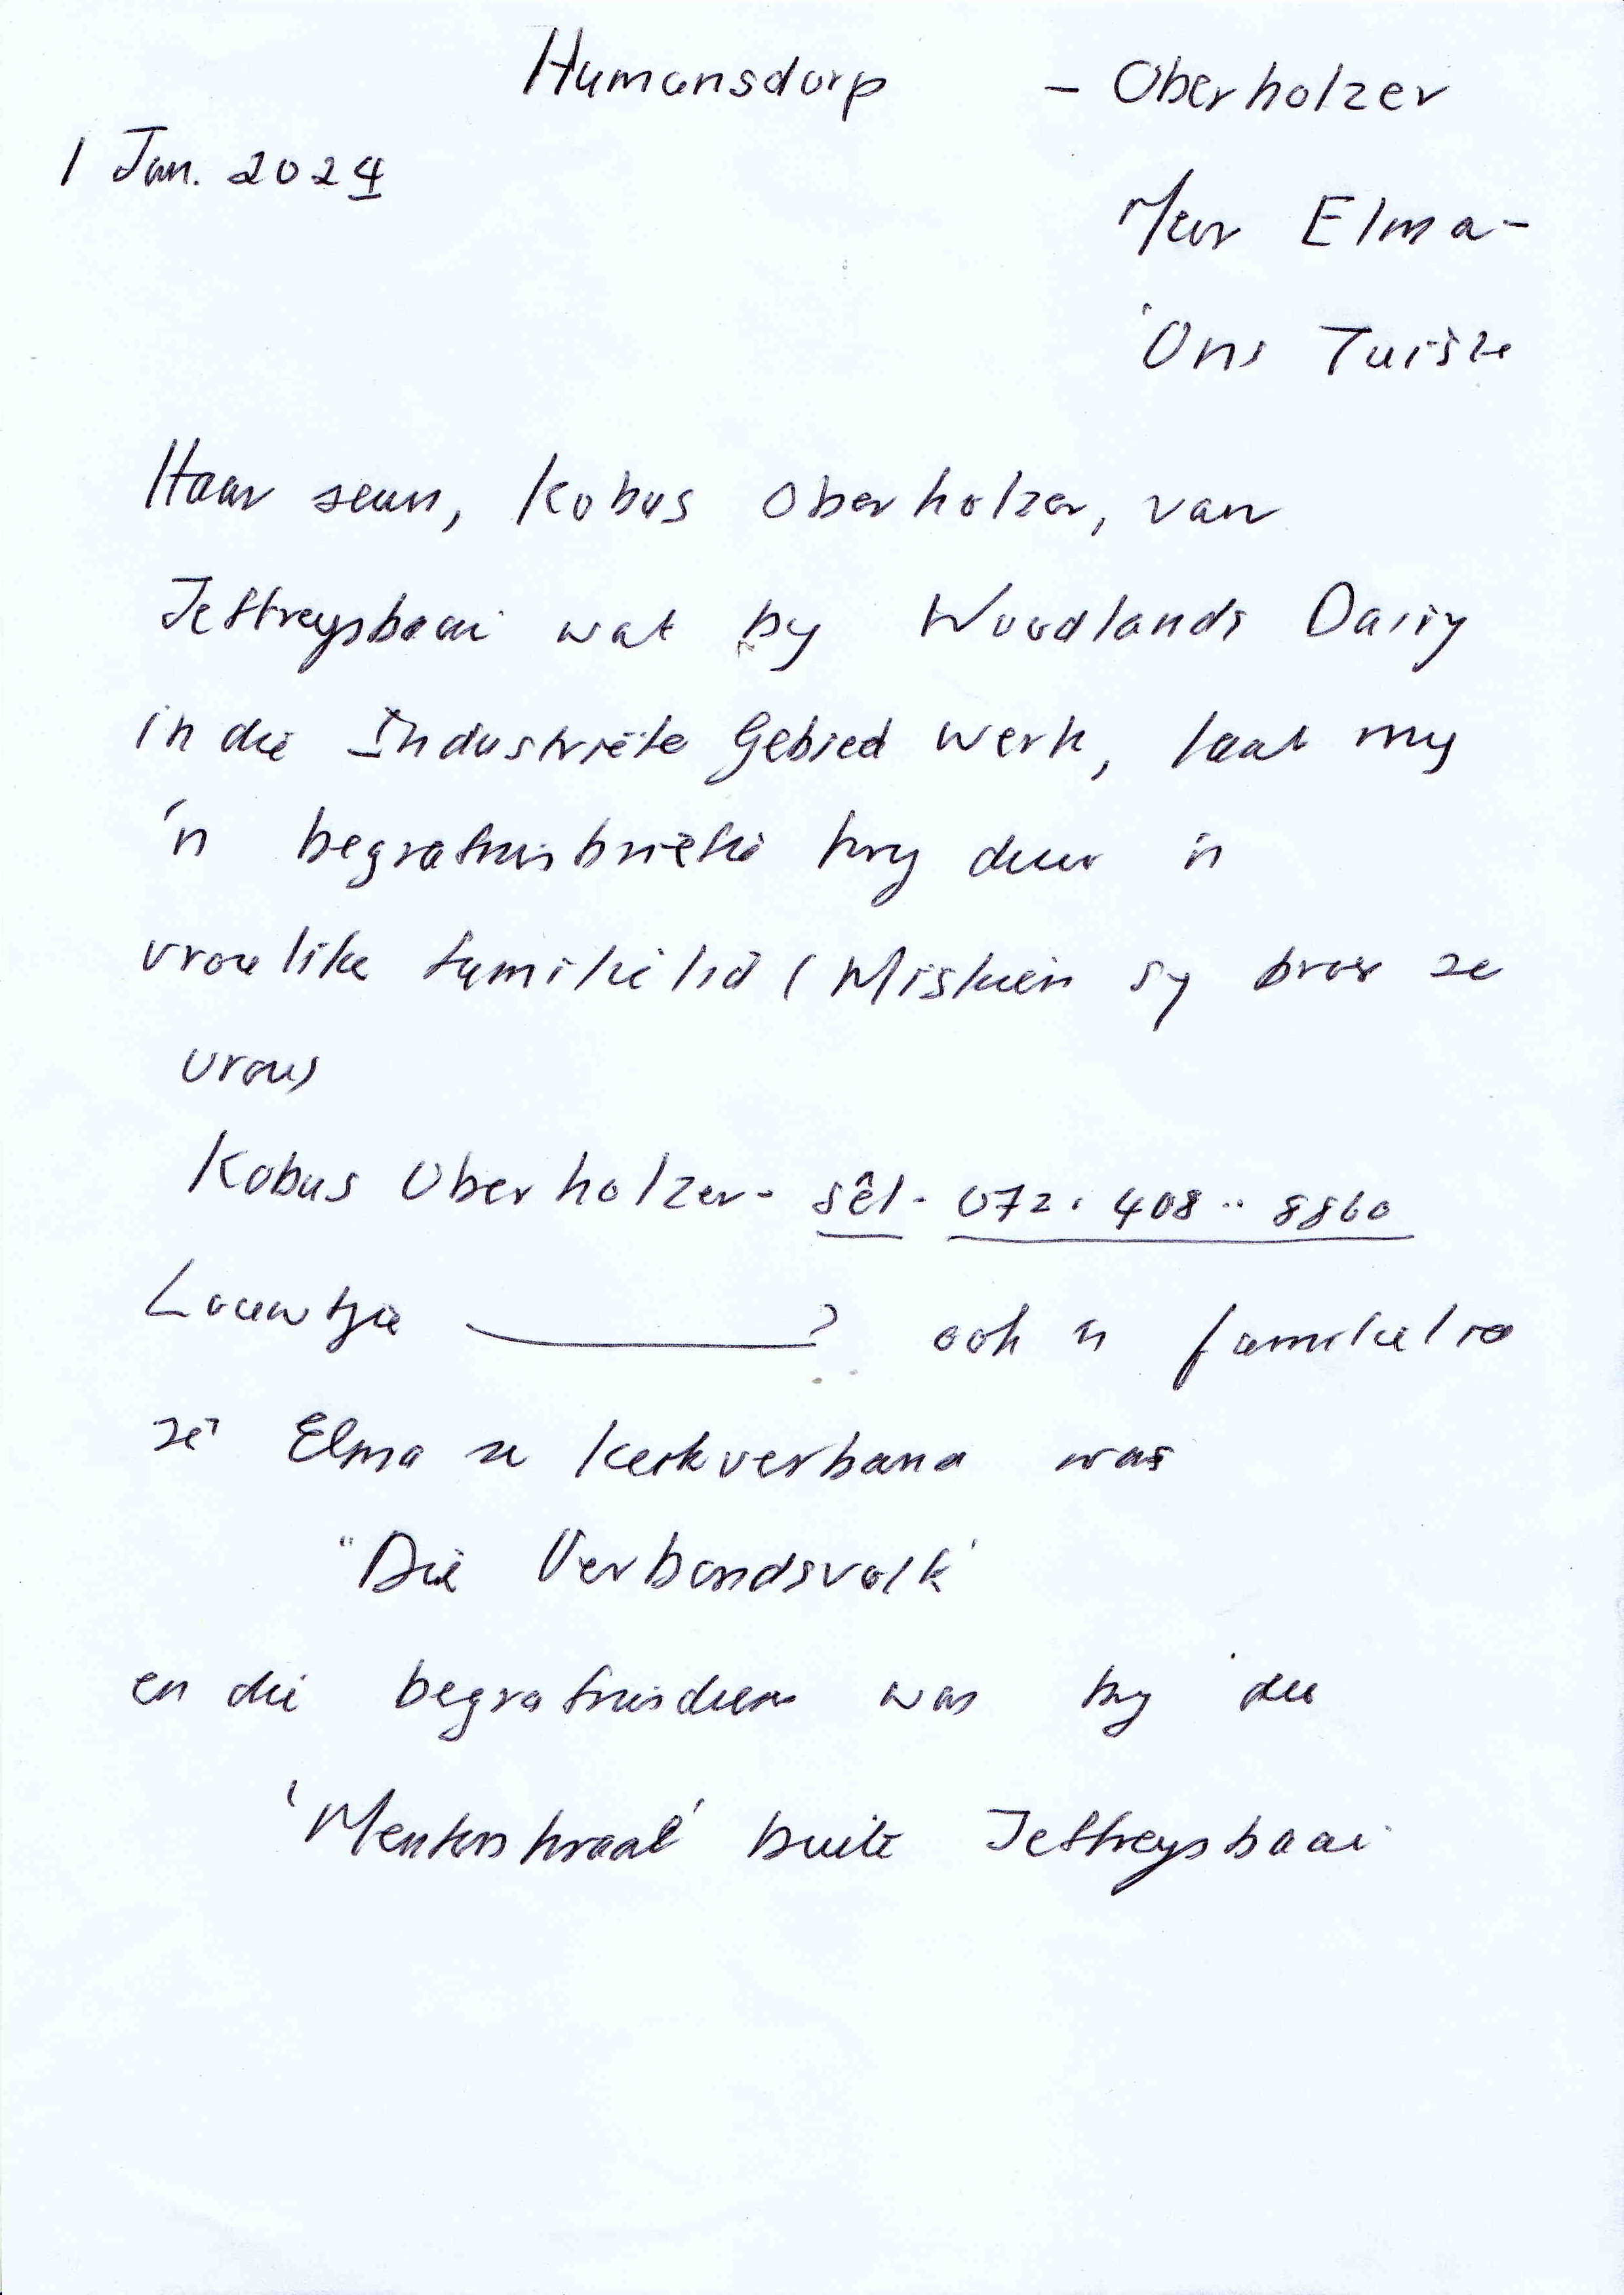 Humansdorp - Oberholzer
1 Jan. 2024
Mev Elma -
'Ons Tuiste
Haar seun, Kobus Oberholzer, van
Jeffreysbaai wat by Woodlands Dairy
in die Industriële Gebied werk, laat my
'n begrafnisbriefie kry deur 'n
vroulike familielid (Miskien sy broer se
vrou)
Kobus Oberholzer - sêl - 072. 408.. 8860
Louwtjie ? ook 'n familielid
sê Elma se Kerkverband was
"Die Verbondsvolk"
en die begrafnisdiens was by die
'Mentorskraal' buite Jeffreysbaai